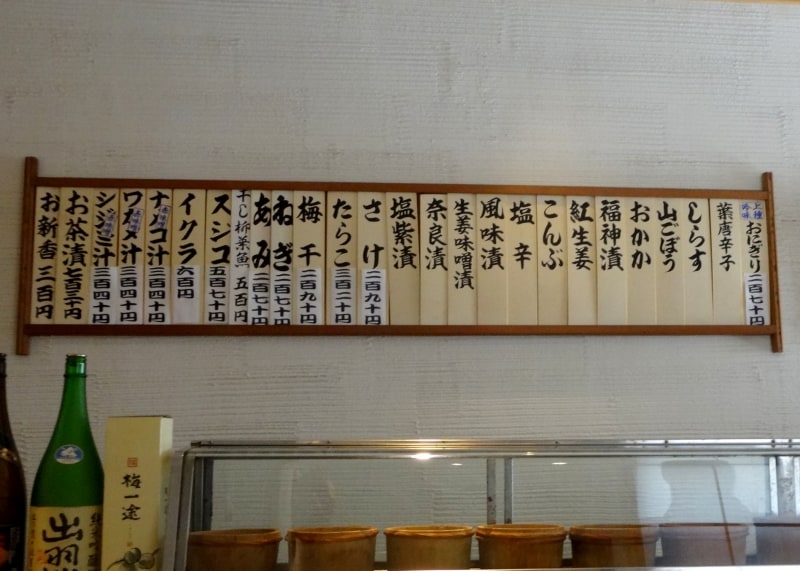 上種 吟味 おにぎり 二百七十円
葉唐辛子
しらす
山ごぼう
おかか
福神漬
紅生姜
こんぶ
塩辛
風味漬
生姜味噌漬
奈良漬
塩紫漬
さけ 二百九十円
たらこ 三百二十円
梅干 二百九十円
ねぎ 二百七十円
あみ 二百七十円
干し柳葉魚 五百円
スジコ 五百七十円
イクラ 六百円
ナメコ汁 三百四十円
ワカメ汁 三百四十円
シジミ汁 三百四十円
お茶漬 七百三十円
お新香 三百円
梅一途
純米吟醸
出羽